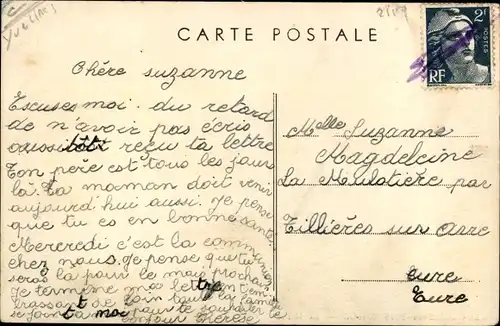 Yvelines
2517
CARTE POSTALE
2F
POSTES
RF
Chère suzanne
Escuses moi du retard
de n'avoir pas écris
aussitôt reçu ta lettre
Ton père est tous les jours
là. Ta maman doit venir
aujourd'hui aussi. Je pense
que tu es en bonne santé.
Mercredi c'est la communion
chez nous. Je pense que tu
seras là pour le mois prochain.
Je termine ma lettre en t'en
brassant de loin toute la famille
se joint à moi pour te souhaiter le
bonjour Thérèse
Melle Suzanne
Magdeleine
La Mulotière par
Tillières sur Avre
eure
Eure